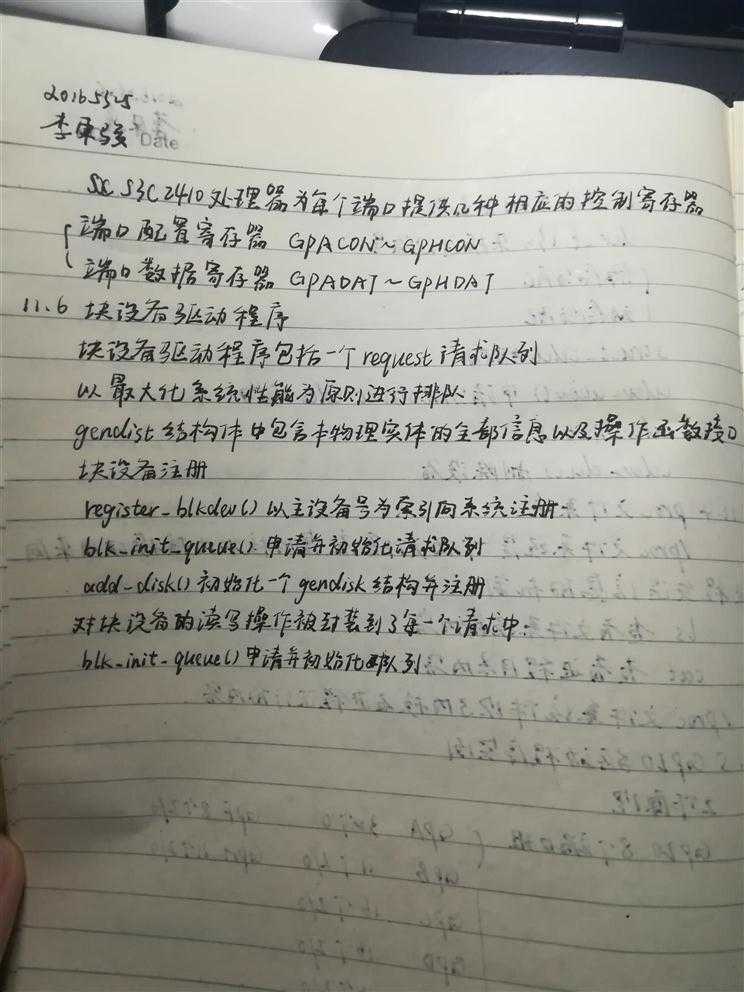 20165525
李
Date
S3C2410处理器为每个端口提供几种相应的控制寄存器
端口配置寄存器 GPACON~GPHCON
端口数据寄存器 GPADAT~GPHDAT
11.6 块设备驱动程序
块设备驱动程序包括一个request请求队列
以最大化系统性能为原则进行排队
gendist结构体中包含本物理实体的全部信息以及操作函数接口
块设备注册
register_blkdev() 以主设备号为索引向系统注册
blk_init_queue() 申请并初始化请求队列
add_disk() 初始化一个gendisk结构并注册
对块设备的读写操作被封装到了每一个请求中:
blk_init_queue() 申请并初始化队列